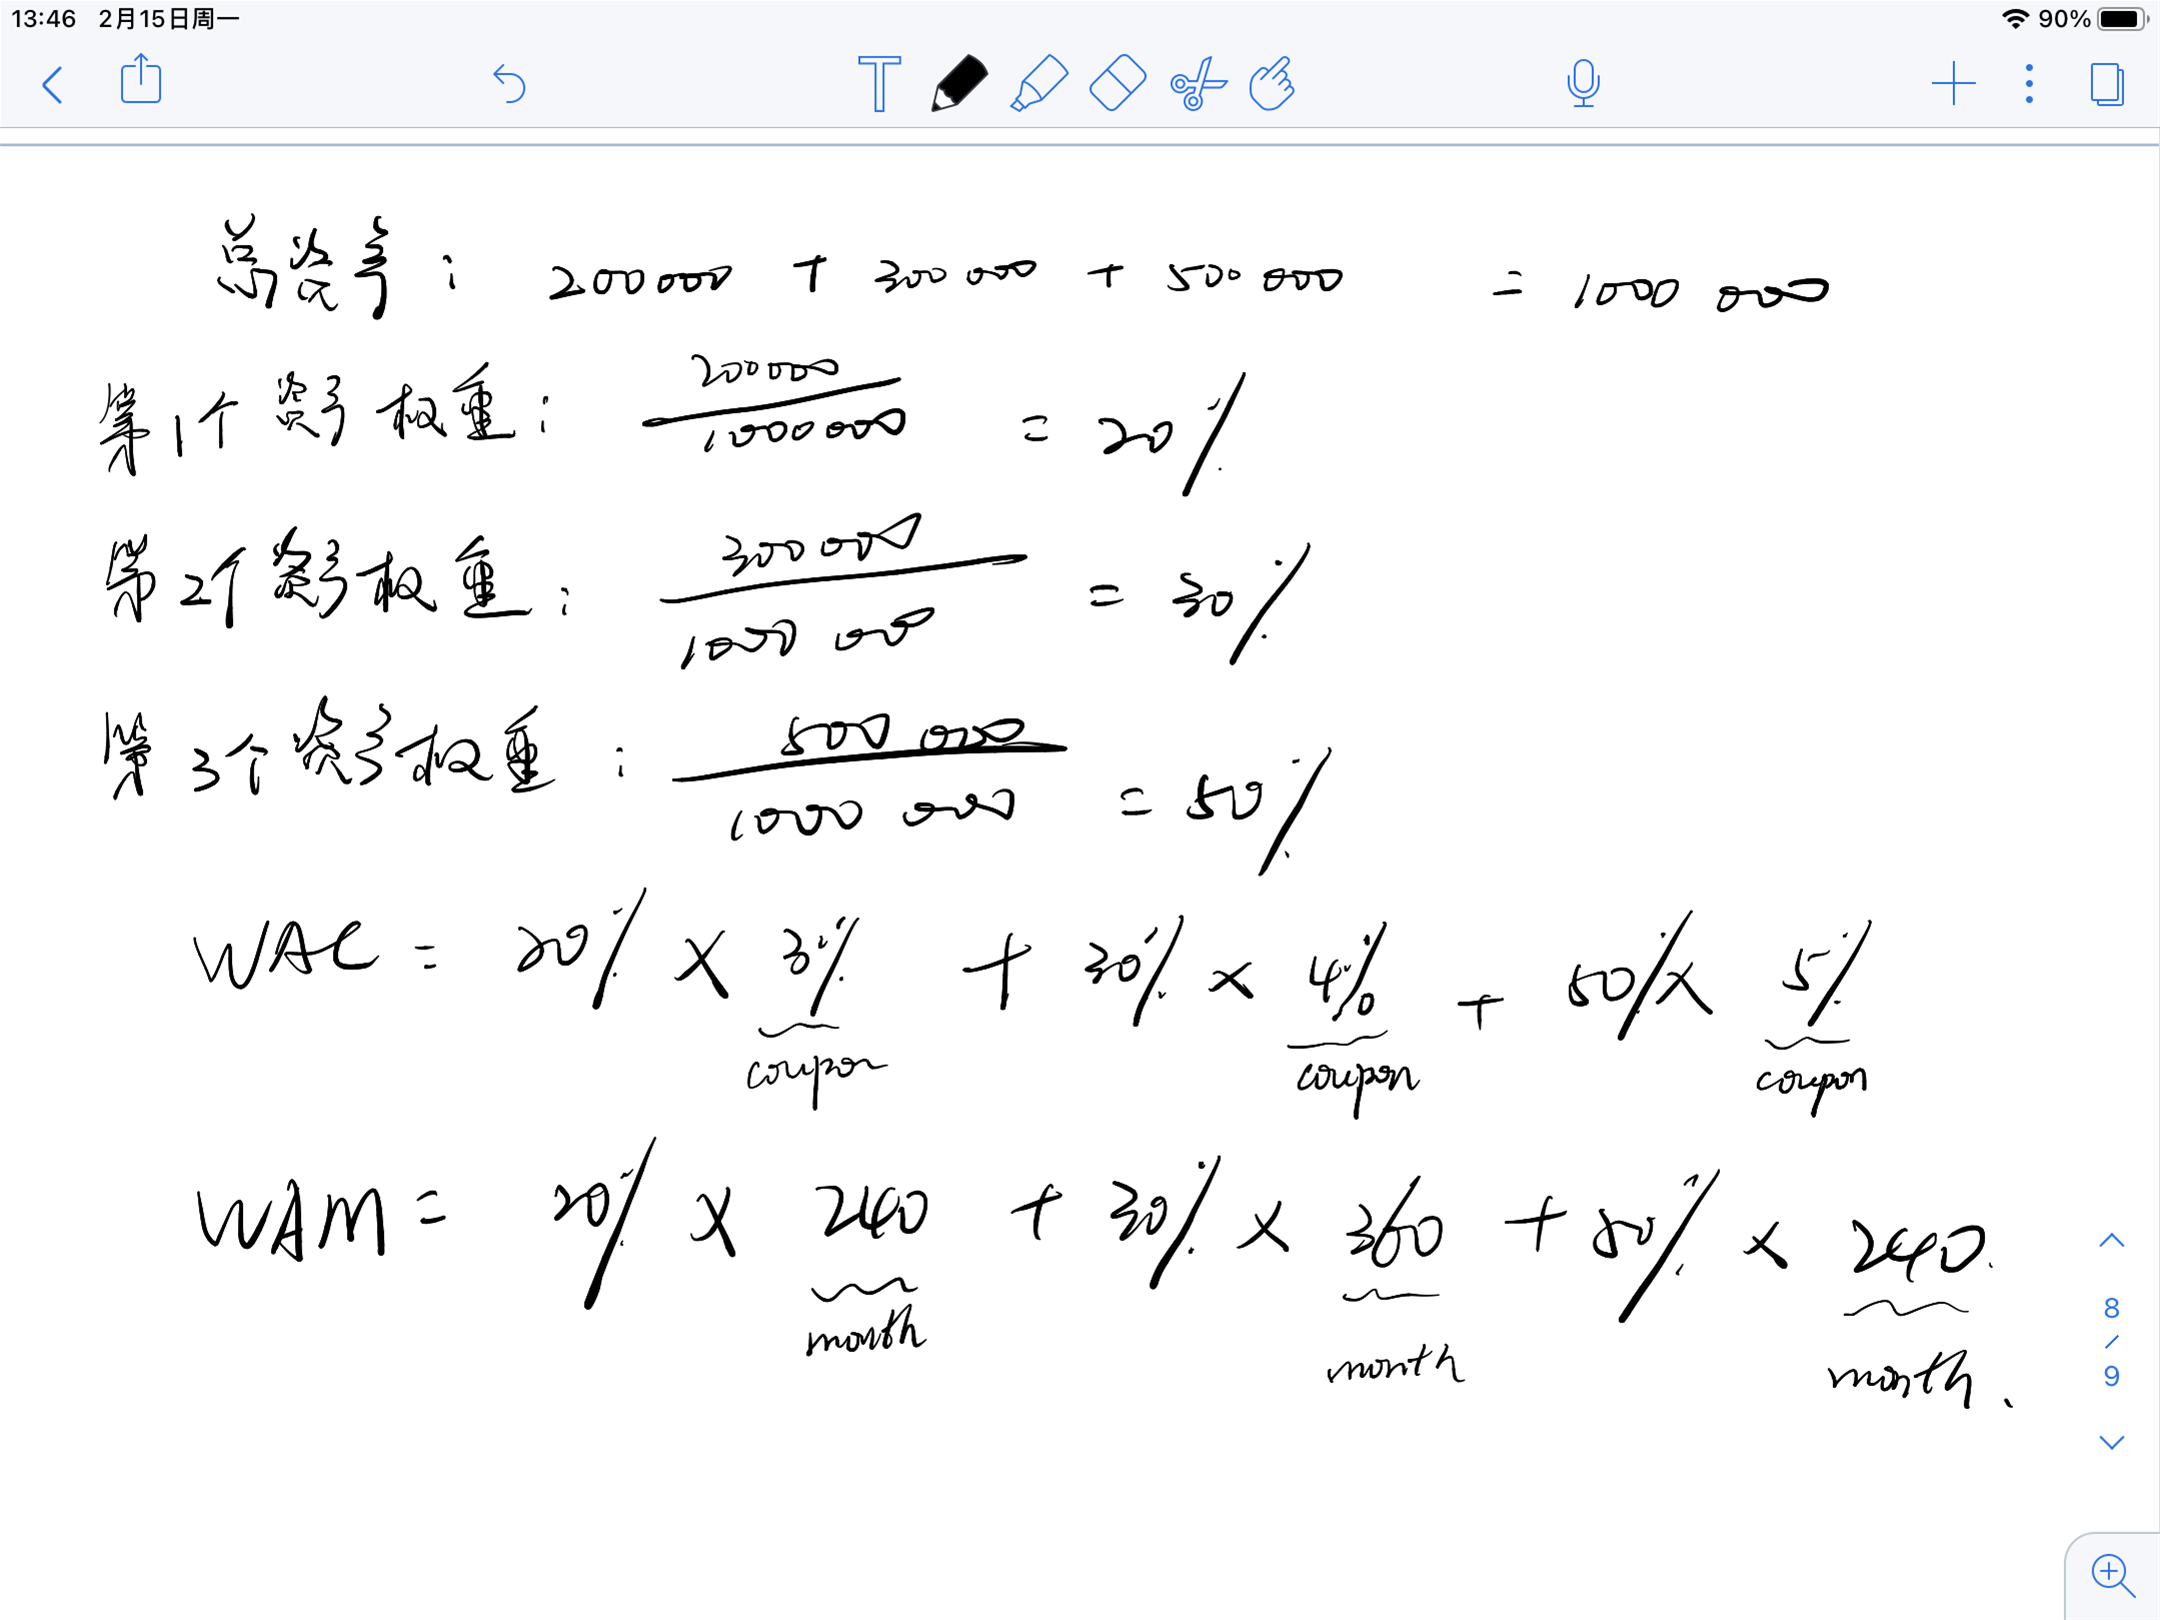 13:46 2月15日周一 90%
T
总资产: 200000 + 300000 + 500000 = 1000 000
第1个资产权重: 200000 / 1000000 = 20%
第2个资产权重: 300000 / 1000 000 = 30%
第3个资产权重: 500 000 / 1000 000 = 50%
WAC = 20% × 3% + 30% × 4% + 50% × 5%
coupon coupon coupon
WAM = 20% × 240 + 30% × 360 + 50% × 240.
month month month.
8
/
9